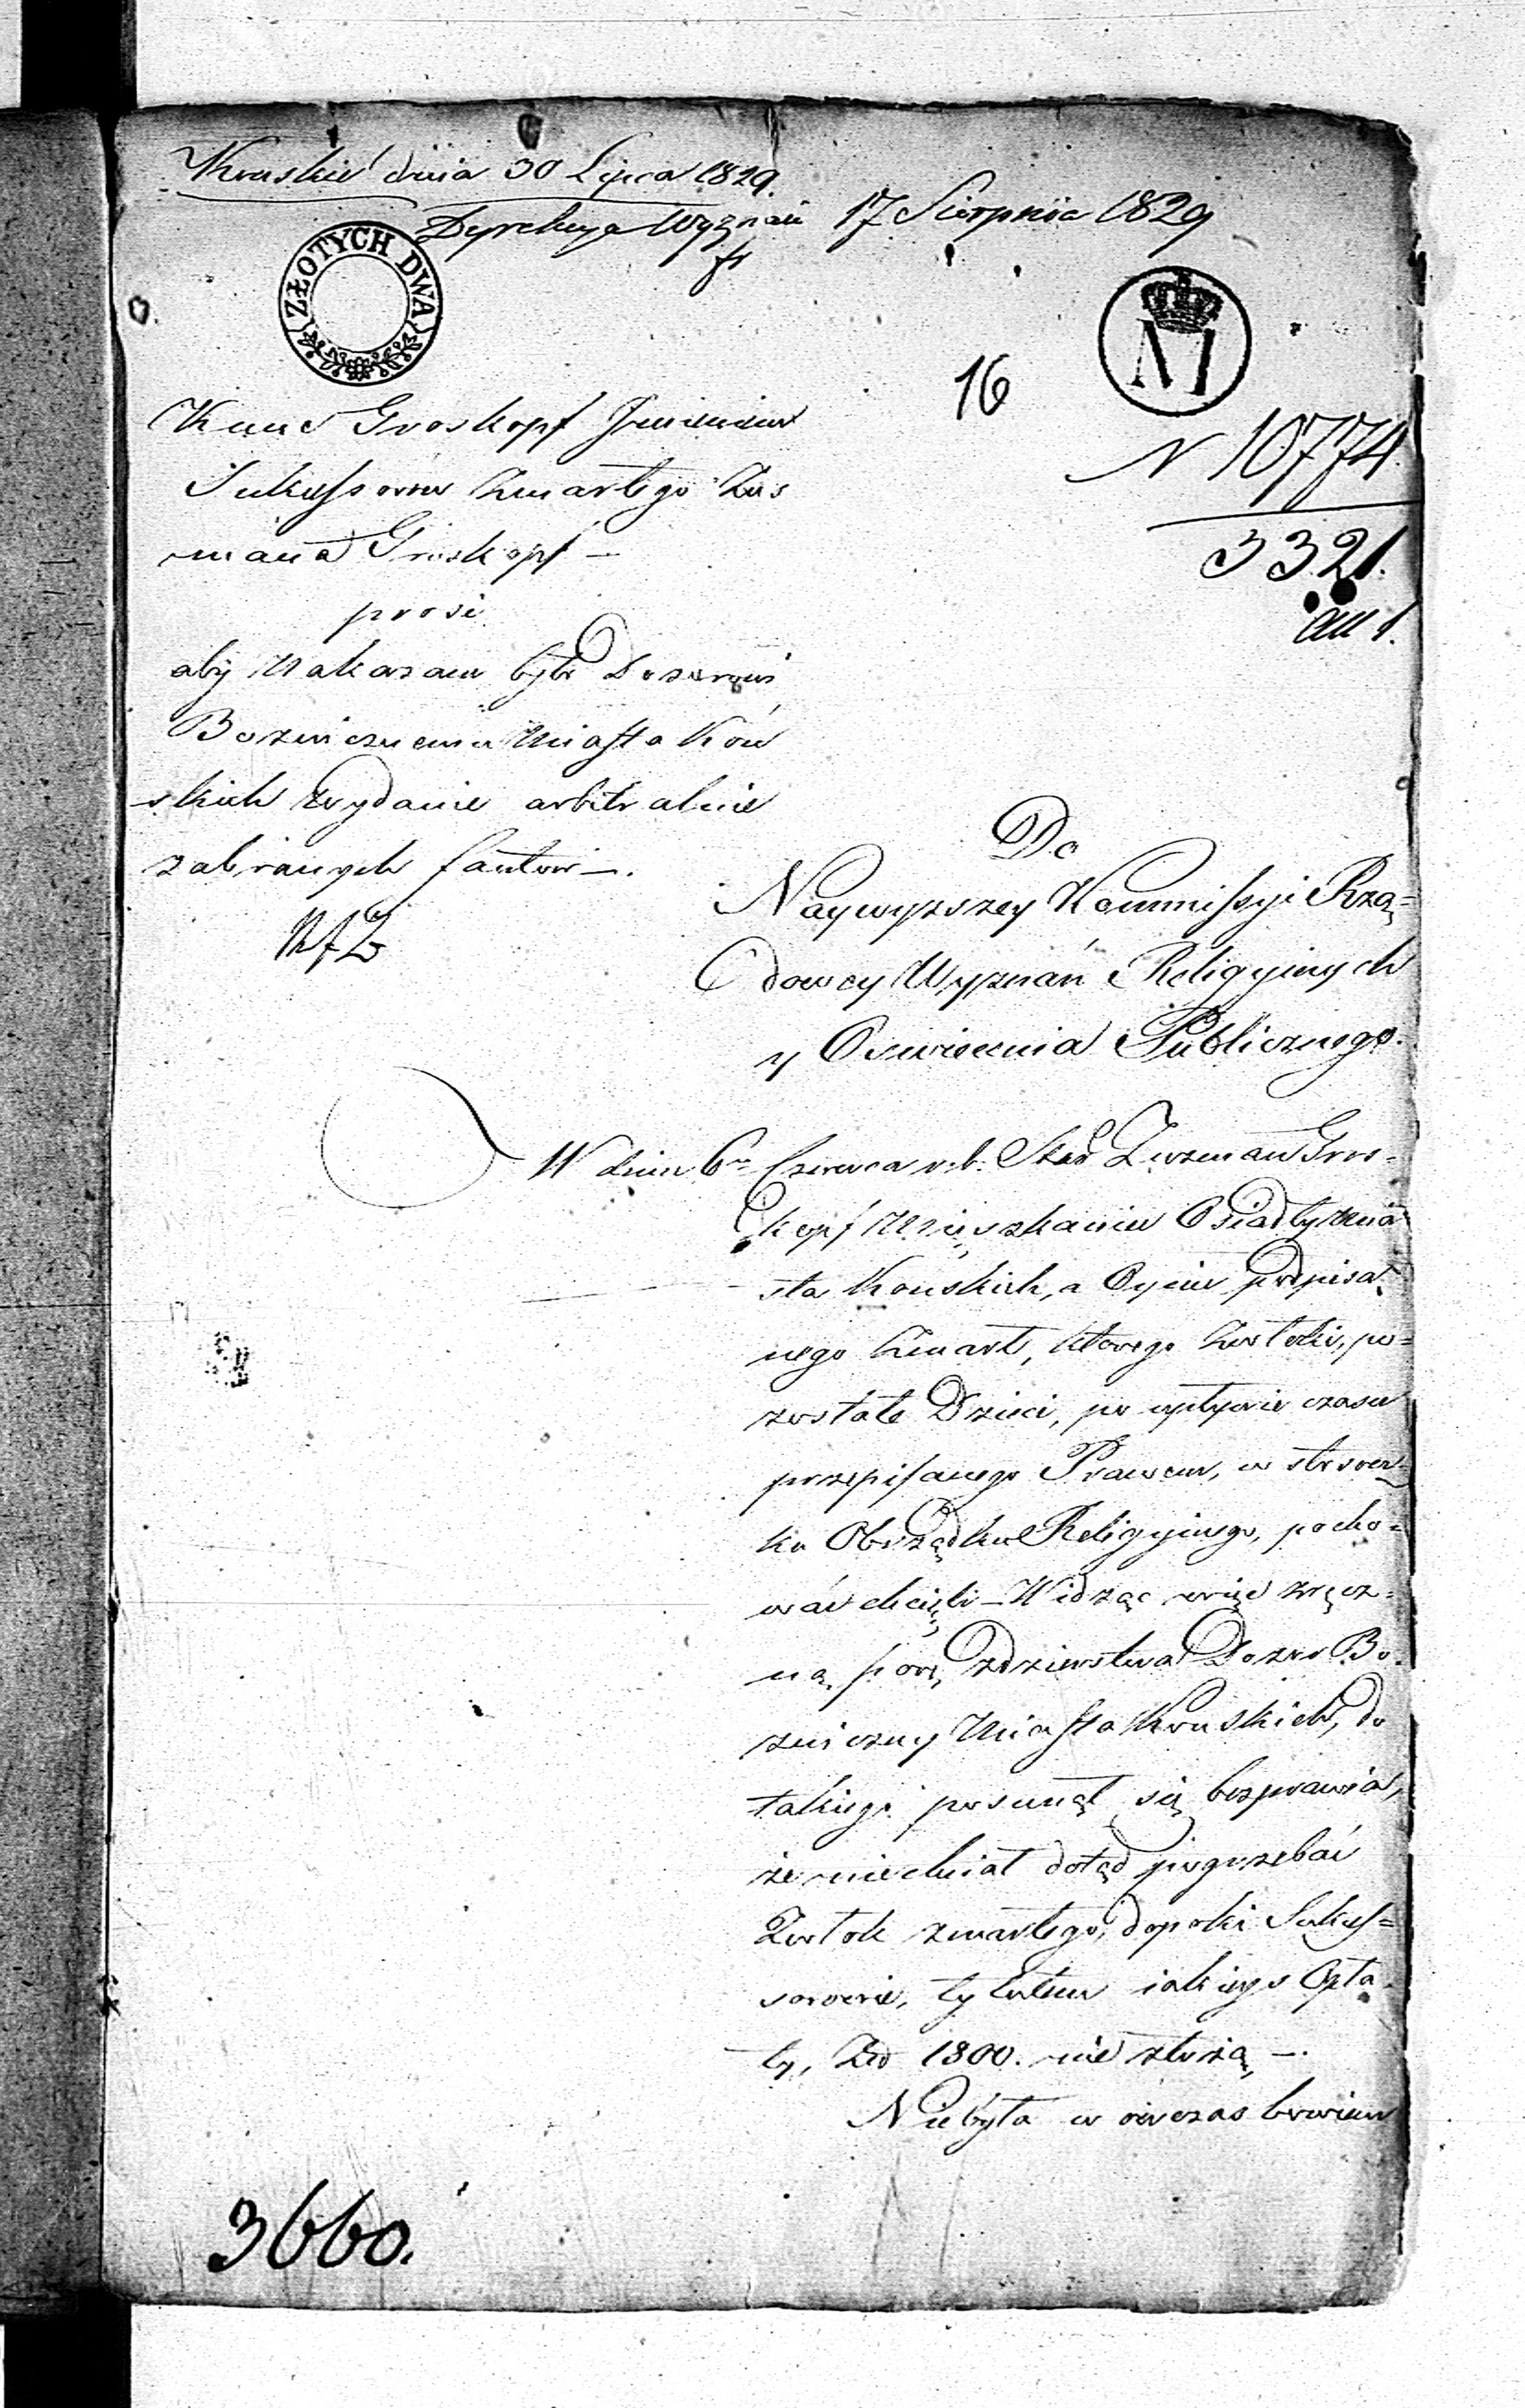 Końskie dnia 30 Lipca 1829.
Dyrekcya Wyznań 17 Sierpnia 1829
ZŁOTYCH DWA
16
N 10774.
3321.
Kune Groskopf Imieniem
Sukcessorow Zmarłego Zus
mana Groskopf —
prosi
aby nakazane było Dozorowi
Bozniczemu Miasta Koń
skich wydanie arbitralnie
zabranych fantow —.
Do
Naywyzszey Kommissyi Rzą=
dowey Wyznań Religyinych
y Oswiecenia Publicznego.
W dniu 6 Czerwca r. b. Star Zuzman Gros-
kopf Mieszkaniec Osiadły Mia
sta Konskich, a Oyciec podpisa
nego Zmarł, ktorego Zwłoki, po=
zostałe Dzieci, po upływie czasu
przepisanego Prawem, w stosun
ku Obrządku Religyinego, pocho=
wać chcieli — Widząc więc zręcz=
ną porę zdzierstwa Dozor Bo=
zniczny Miasta Konskich, do
takiego posunął się bezprawia,
że niechciał dotąd pogrzebać
Zwłok zmarłego, dopoki Sukces=
sorowie, tytułem iakieys Opła=
ty, Złp 1800. nie złożą —.
Niebyła w owczas bowiem
3660.